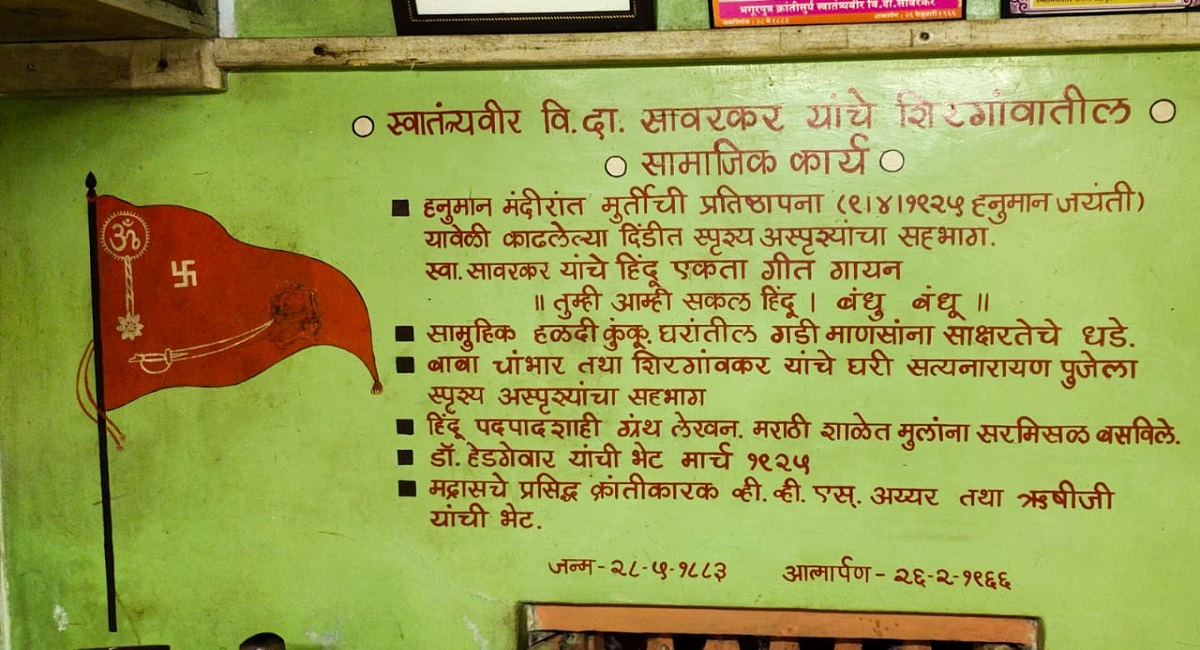 भगूरपुत्र क्रांतीसुर्य स्वातंत्र्यवीर वि.दा.सावरकर
स्वातंत्र्यवीर वि.दा. सावरकर यांचे शिरगांवातील
सामाजिक कार्य
हनुमान मंदीरांत मुर्तीची प्रतिष्ठापना (९।४।१९२५ हनुमान जयंती)
यावेळी काढलेल्या दिंडीत स्पृश्य अस्पृश्यांचा सहभाग.
स्वा. सावरकर यांचे हिंदू एकता गीत गायन
॥ तुम्ही आम्ही सकल हिंदू। बंधु बंधू ॥
सामुहिक हळदी कुंकू. घरांतील गडी माणसांना साक्षरतेचे धडे.
बाबा चांभार तथा शिरगांवकर यांचे घरी सत्यनारायण पुजेला
स्पृश्य अस्पृश्यांचा सहभाग
हिंदू पदपादशाही ग्रंथ लेखन. मराठी शाळेत मुलांना सरमिसळ बसविले.
डॉ. हेडगेवार यांची भेट मार्च १९२५
मद्रासचे प्रसिद्ध क्रांतीकारक व्ही. व्ही. एस्. अय्यर तथा ऋषीजी
यांची भेट.
जन्म-२८-५-१८८३ आत्मार्पण-२६-२-१९६६
ॐ
卐